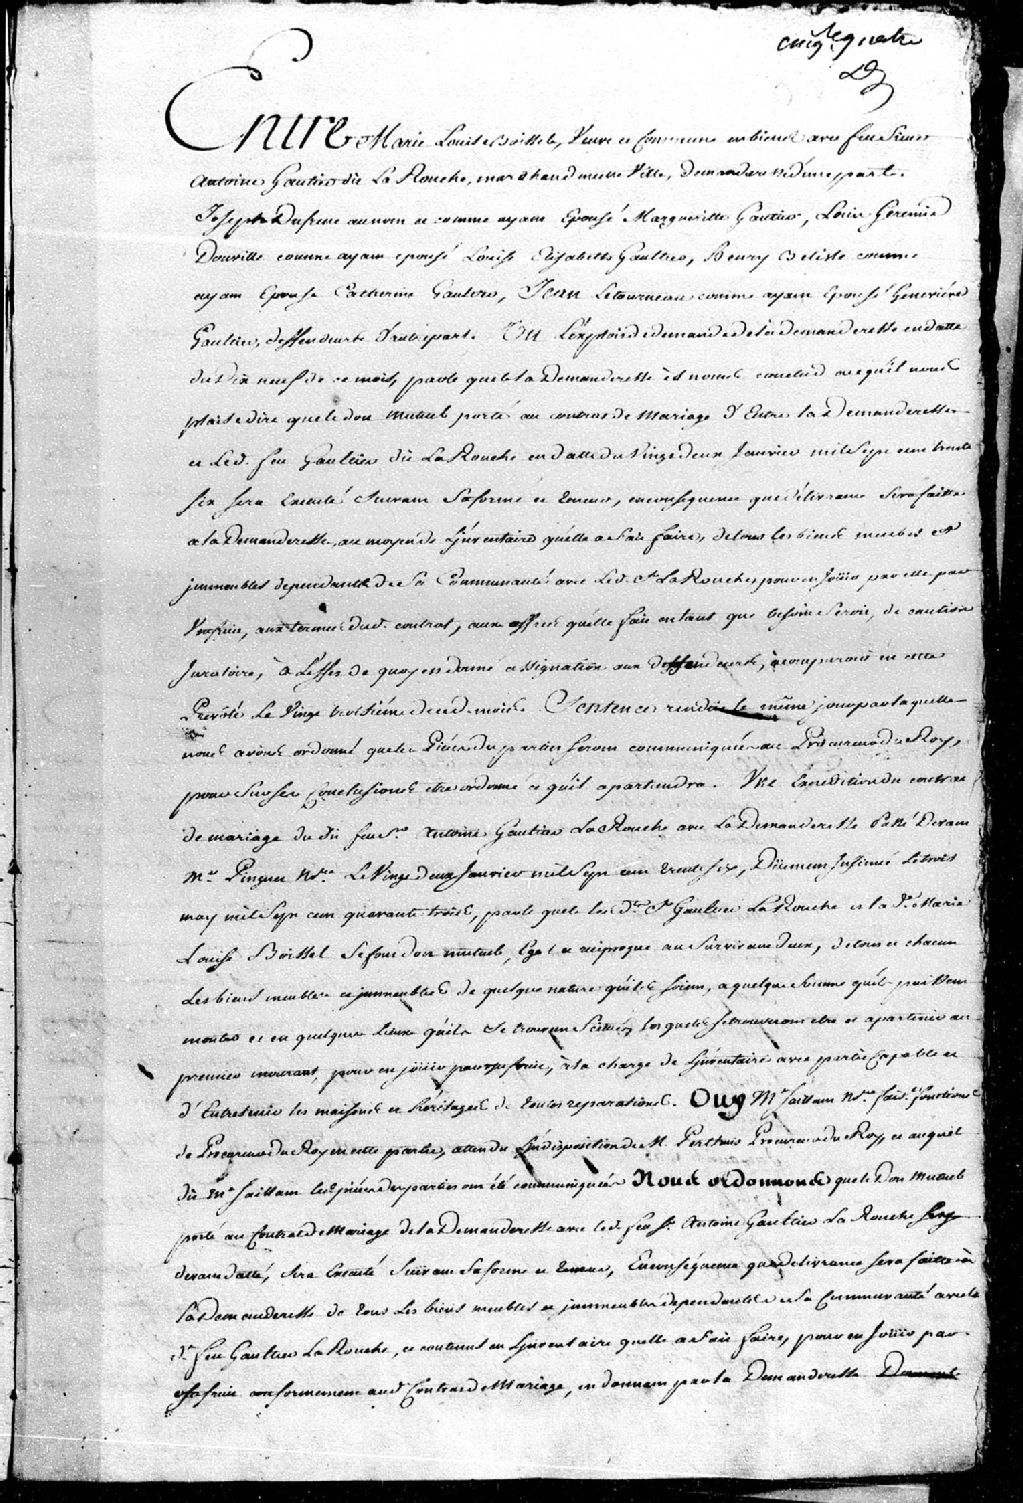 cinq.te quatre
Entre Marie Louise Boissel, Veuve et Commune en biens avec feu Sieur
Antoine Gautier dit La Rouche, marchand en cette Ville, demanderesse d'une part.
Joseph Dufresne au nom et comme ayant Epousé Margueritte Gautier, Louis Geremie
Douville comme ayant epousé Louise Elizabeth Gaultier, henry Belisle comme
ayant Epousé Catherine Gautier, Jean Letourneau comme ayant Epousé Geneviève
Gautier, deffendeurs d'autre part. Vu L'exploit de demande de la demanderesse en datte
du Dix neuf de ce mois, par lequel la Demanderesse a conclud a ce qu'il nous
plaise dire que le don mutuel porté au contrat de Mariage d'Entre la Demanderesse
et Led. feu Gaultier dit La Rouche en datte du Vingt deux Janvier mil Sept cent trente
six sera Executé Suivant Sa forme et teneur, en consequence que délivrance Sera faitte
a la Demanderesse, au moyen de L'jnventaire qu'elle a fait faire, de tous les biens meubles et
jmmeubles dependants de Sa Communauté avec Led. Sr. La Rouche, pour en Joüir par elle par
Usufruit, aux termes dud. contrat, aux offres qu'elle fait en tant que besoin Seroit, de caution
Juratoire, à L'effet de quoy en donné assignation aux deffendeurs, à comparoir en cette
Prevôté Le Vingt troisième dud. mois. Sentence rendüe le même jour par laquelle
nous avons ordonné que les Pièces des parties seront communiquées au Procureur du Roy,
pour Sur ses Conclusions etre ordonné ce qu'il apartiendra. Une Expedition du contrat
de mariage du dit feu Sr. Antoine Gautier La Rouche avec La Demanderesse Passé Devant
Me. Pinguet Nre. Le Vingt deux Janvier mil Sept cent trente six, Düement Insinué Le trois
may mil Sept cent quarante trois, par lequel les d. Sr. Gaultier La Rouche et la de. Marie
Louise Boissel Se font don mutuel, Egal et reciproque au Survivant d'eux, de tous et chacun
Les biens meubles et jmmeubles de quelque nature qu'ils soient, a quelque Somme qu'ils puissent
monter et en quelques Lieux qu'ils Se trouvent Scitués, Lesquels Se trouveront etre et apartenir au
premier mourant, pour en joüir par usufruit, à la charge de L'jnventaire avec partie Capable et
d'Entretenir les maisons et heritages de toutes reparations. Ouy Me. Saillant Nre. fais.t fonctions
de Procureur du Roy en cette partie, attendu L'indisposition de M. Perthuis Procureur du Roy, et auquel
dit Me. Saillant les pièces des parties ont été communiquées Nous ordonnons que le Don Mutuel
porté au Contrat de Mariage de la Demanderesse avec led. feu Sr. Antoine Gaultier La Rouche
devant datté, Sera Executé Suivant Sa forme et teneur, En conséquence que delivrance sera faitte à
la Demanderesse de tous Les biens meubles et jmmeubles dependants de Sa Communauté avec le
d. feu Gaultier La Rouche, et contenus en L'jnventaire qu'elle a fait faire, pour en Joüir par
usufruit conformement aud. Contrat de Mariage, en donnant par la Demanderesse